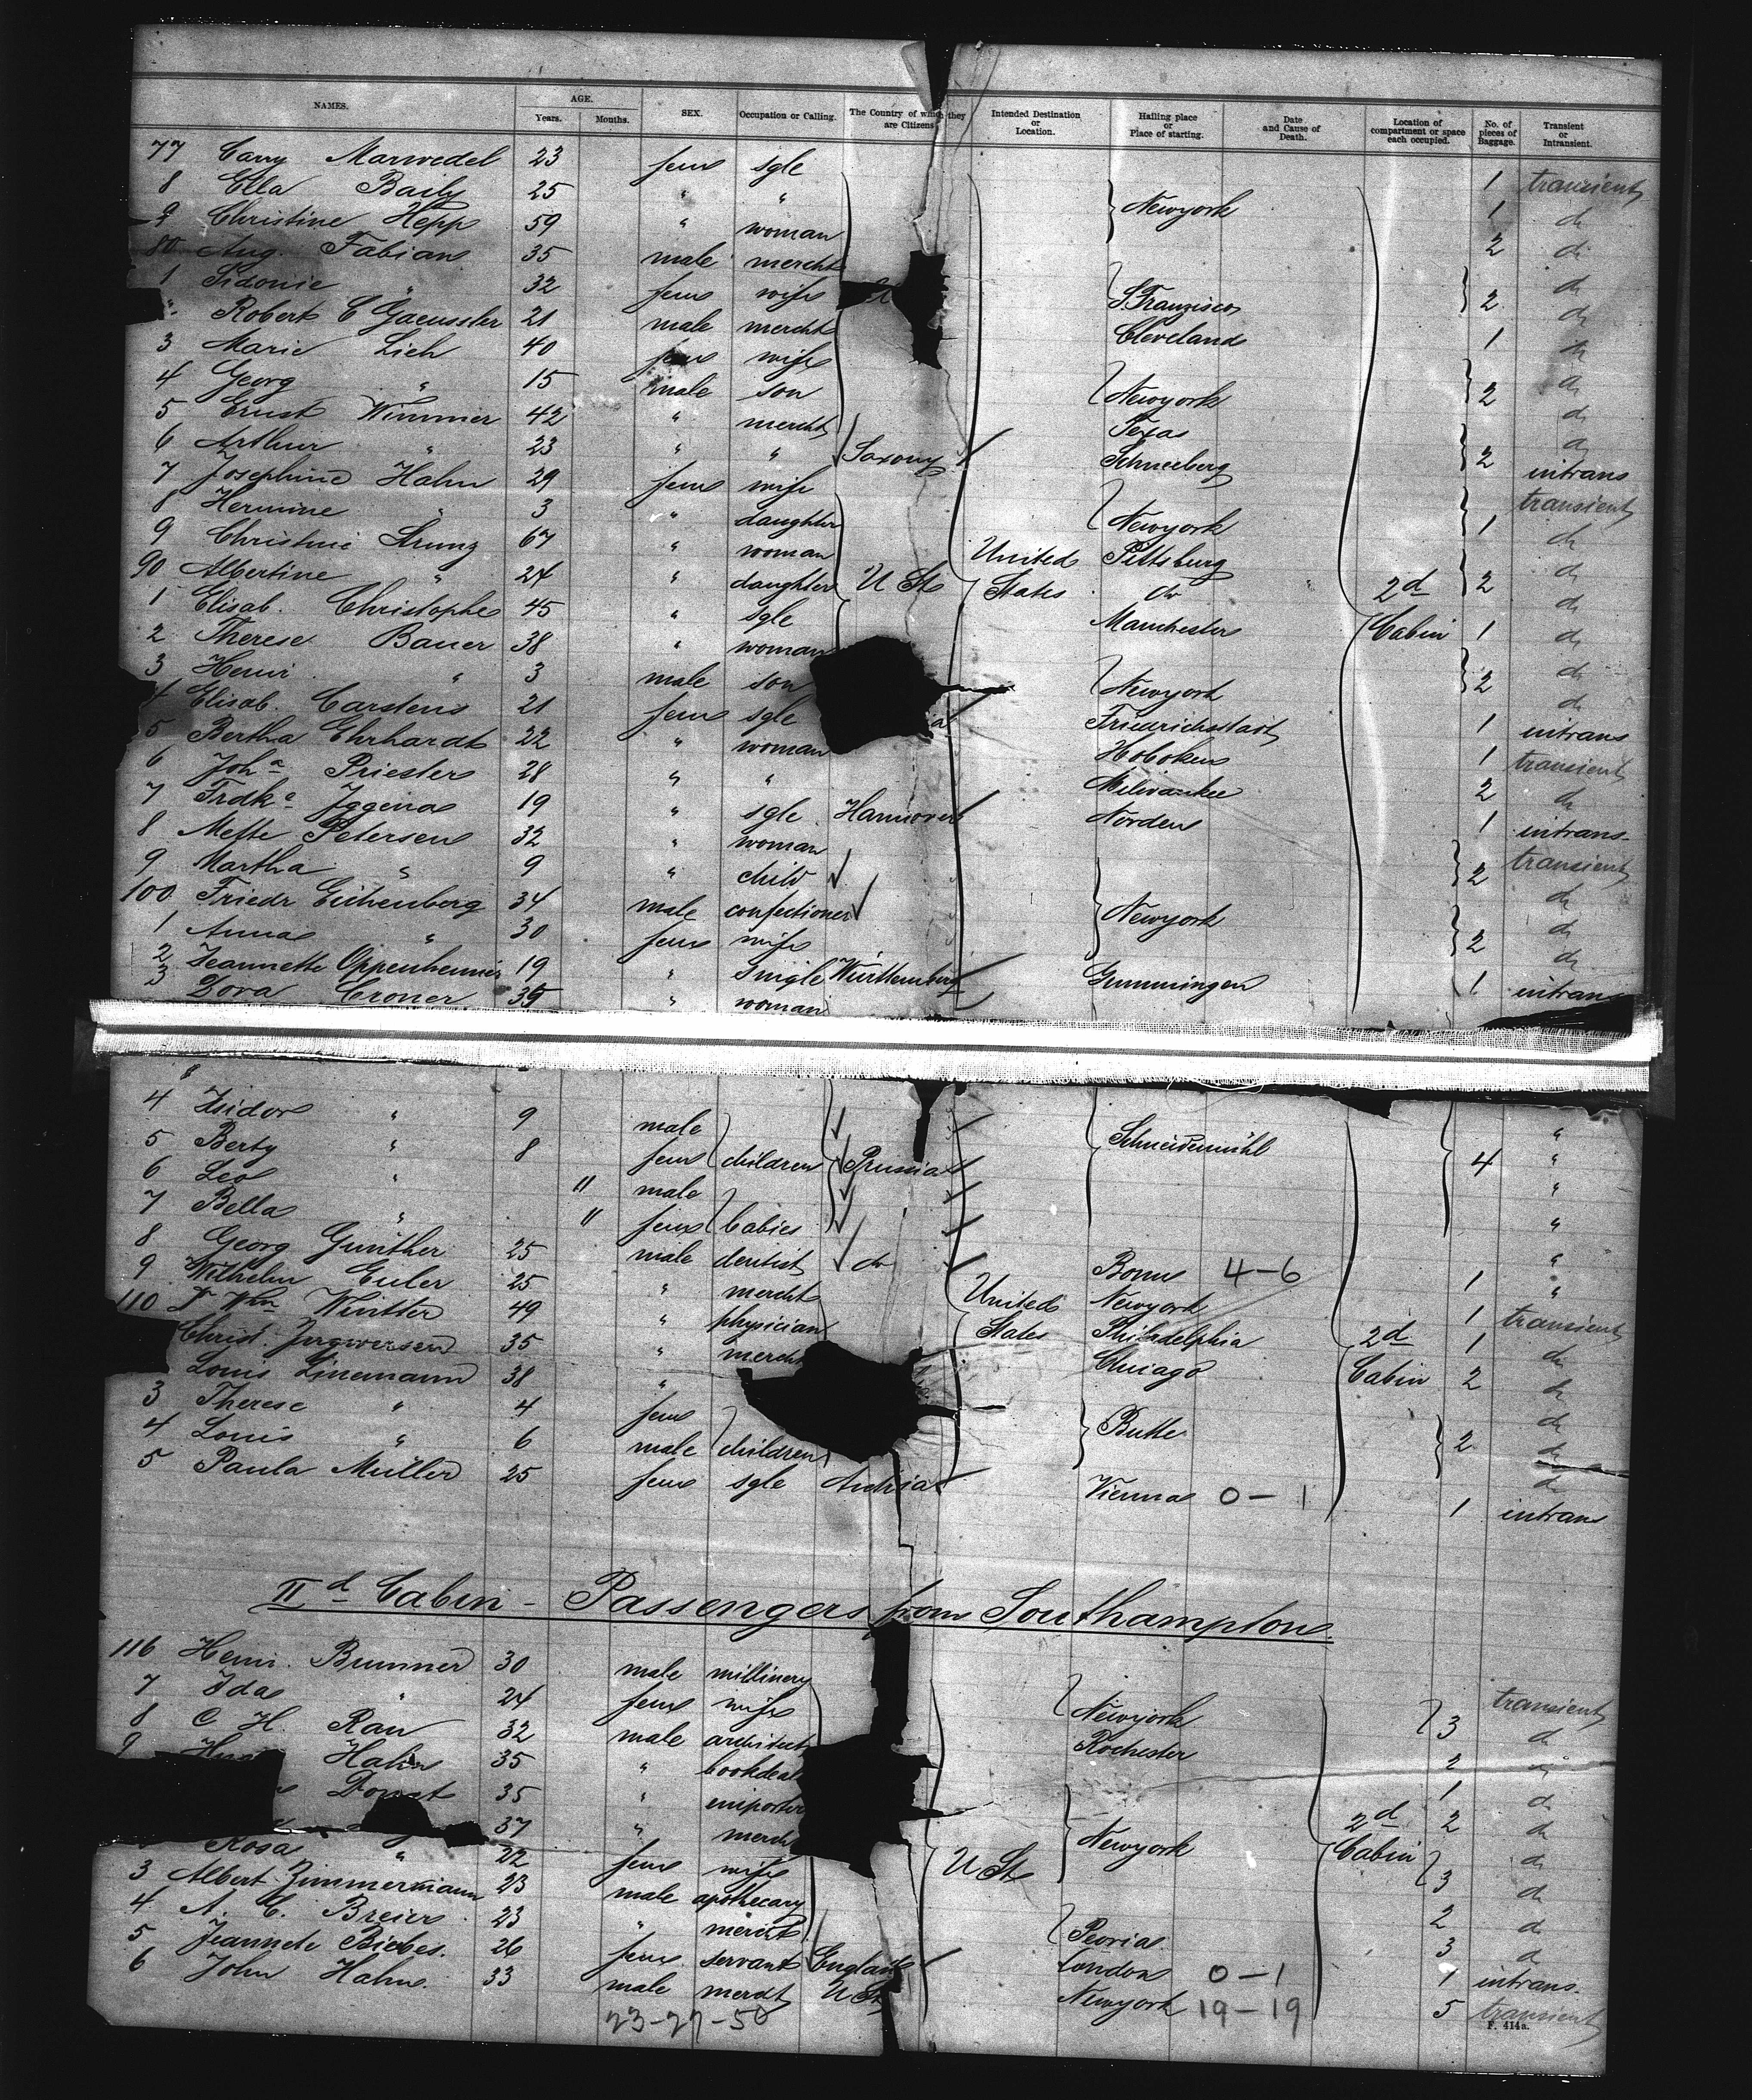 NAMES. AGE. Years. Months. SEX. Occupation or Calling. The Country of which they are Citizens. Intended Destination or Location. Hailing place or Place of starting. Date and Cause of Death. Location of compartment or space each occupied. No. of pieces of Baggage. Transient or Intransient.
77 Carry Marwedel 23 fem sgle 1 transient
8 Ella Baily 25 " " Newyork 1 do
9 Christine Hepp 59 " woman 2 do
80 Aug. Fabian 35 male mercht do
1 Sidonie " 32 fem wife S. Franzisco 2 do
Robert C Gaeussler 21 male mercht Cleveland 1 do
3 Marie Lich 40 fem wife do
4 Georg " 15 male son Newyork 2 do
5 Ernst Wimmer 42 " mercht Texas do
6 Arthur " 23 " " Saxony Schneeberg 2 intrans
7 Josephine Hahn 29 fem wife transient
8 Hermine " 3 " daughter Newyork 1 do
9 Christine Strunz 67 " woman United Pittsburg do
90 Albertine " 24 " daughter U St States do 2d 2 do
1 Elisab. Christophe 45 " sgle Manchester Cabin 1 do
2 Therese Bauer 38 " woman do
3 Henri " 3 male son Newyork 2 do
4 Elisab. Carstens 21 fem sgle Friedrichstadt 1 intrans
5 Bertha Ehrhardt 22 " woman Hoboken 1 transient
6 Joha Priester 28 " " Milwaukee 2 do
7 Frdke Iggena 19 " sgle Hannover Norden 1 intrans
8 Mette Petersen 32 " woman transient
9 Martha " 9 " child 2 do
100 Friedr Eichenberg 34 male confectioner Newyork do
1 Anna " 30 fem wife 2 do
2 Jeannette Oppenheimer 19 " single Württemberg Gemmingen 1 intrans
3 Dora Croner 35 " woman
4 Isidor " 9 male "
5 Berty " 8 fem children Prussia Schneidemühl 4 "
6 Leo " 11 male "
7 Bella " 11 fem babies "
8 Georg Günther 25 male dentist do Bonn 4-6 1 "
9 Wilhelm Euler 25 " mercht United Newyork 1 transient
110 Dr Wm Wintter 49 " physician States Philadelphia 2d 1 do
Christ. Jngwersen 35 " mercht Chicago Cabin 2 do
Louis Linemann 38 " do
3 Therese " 4 fem Butte do
4 Louis " 6 male children 2 do
5 Paula Müller 25 fem sgle Austria Vienna 0-1 1 intrans
IId Cabin - Passengers from Southampton
116 Henri. Brunner 30 male millinery transient
7 Ida " 24 fem wife Newyork 3 do
8 C H. Rau 32 male architect Rochester 2 do
9 Hahn 35 " bookdeal 1 do
35 " importer 2d 2 do
37 " merch Newyork Cabin do
Rosa " 22 fem wife U St 3 do
3 Albert Zimmermann 23 male apothecary 2 do
4 A. C. Breier 23 " mercht Peoria 3 do
5 Jeannete 26 fem servant England London 0-1 1 intrans.
6 John Hahn 33 male mercht U St Newyork 19-19 5 transient
23-27-50
F. 414a.